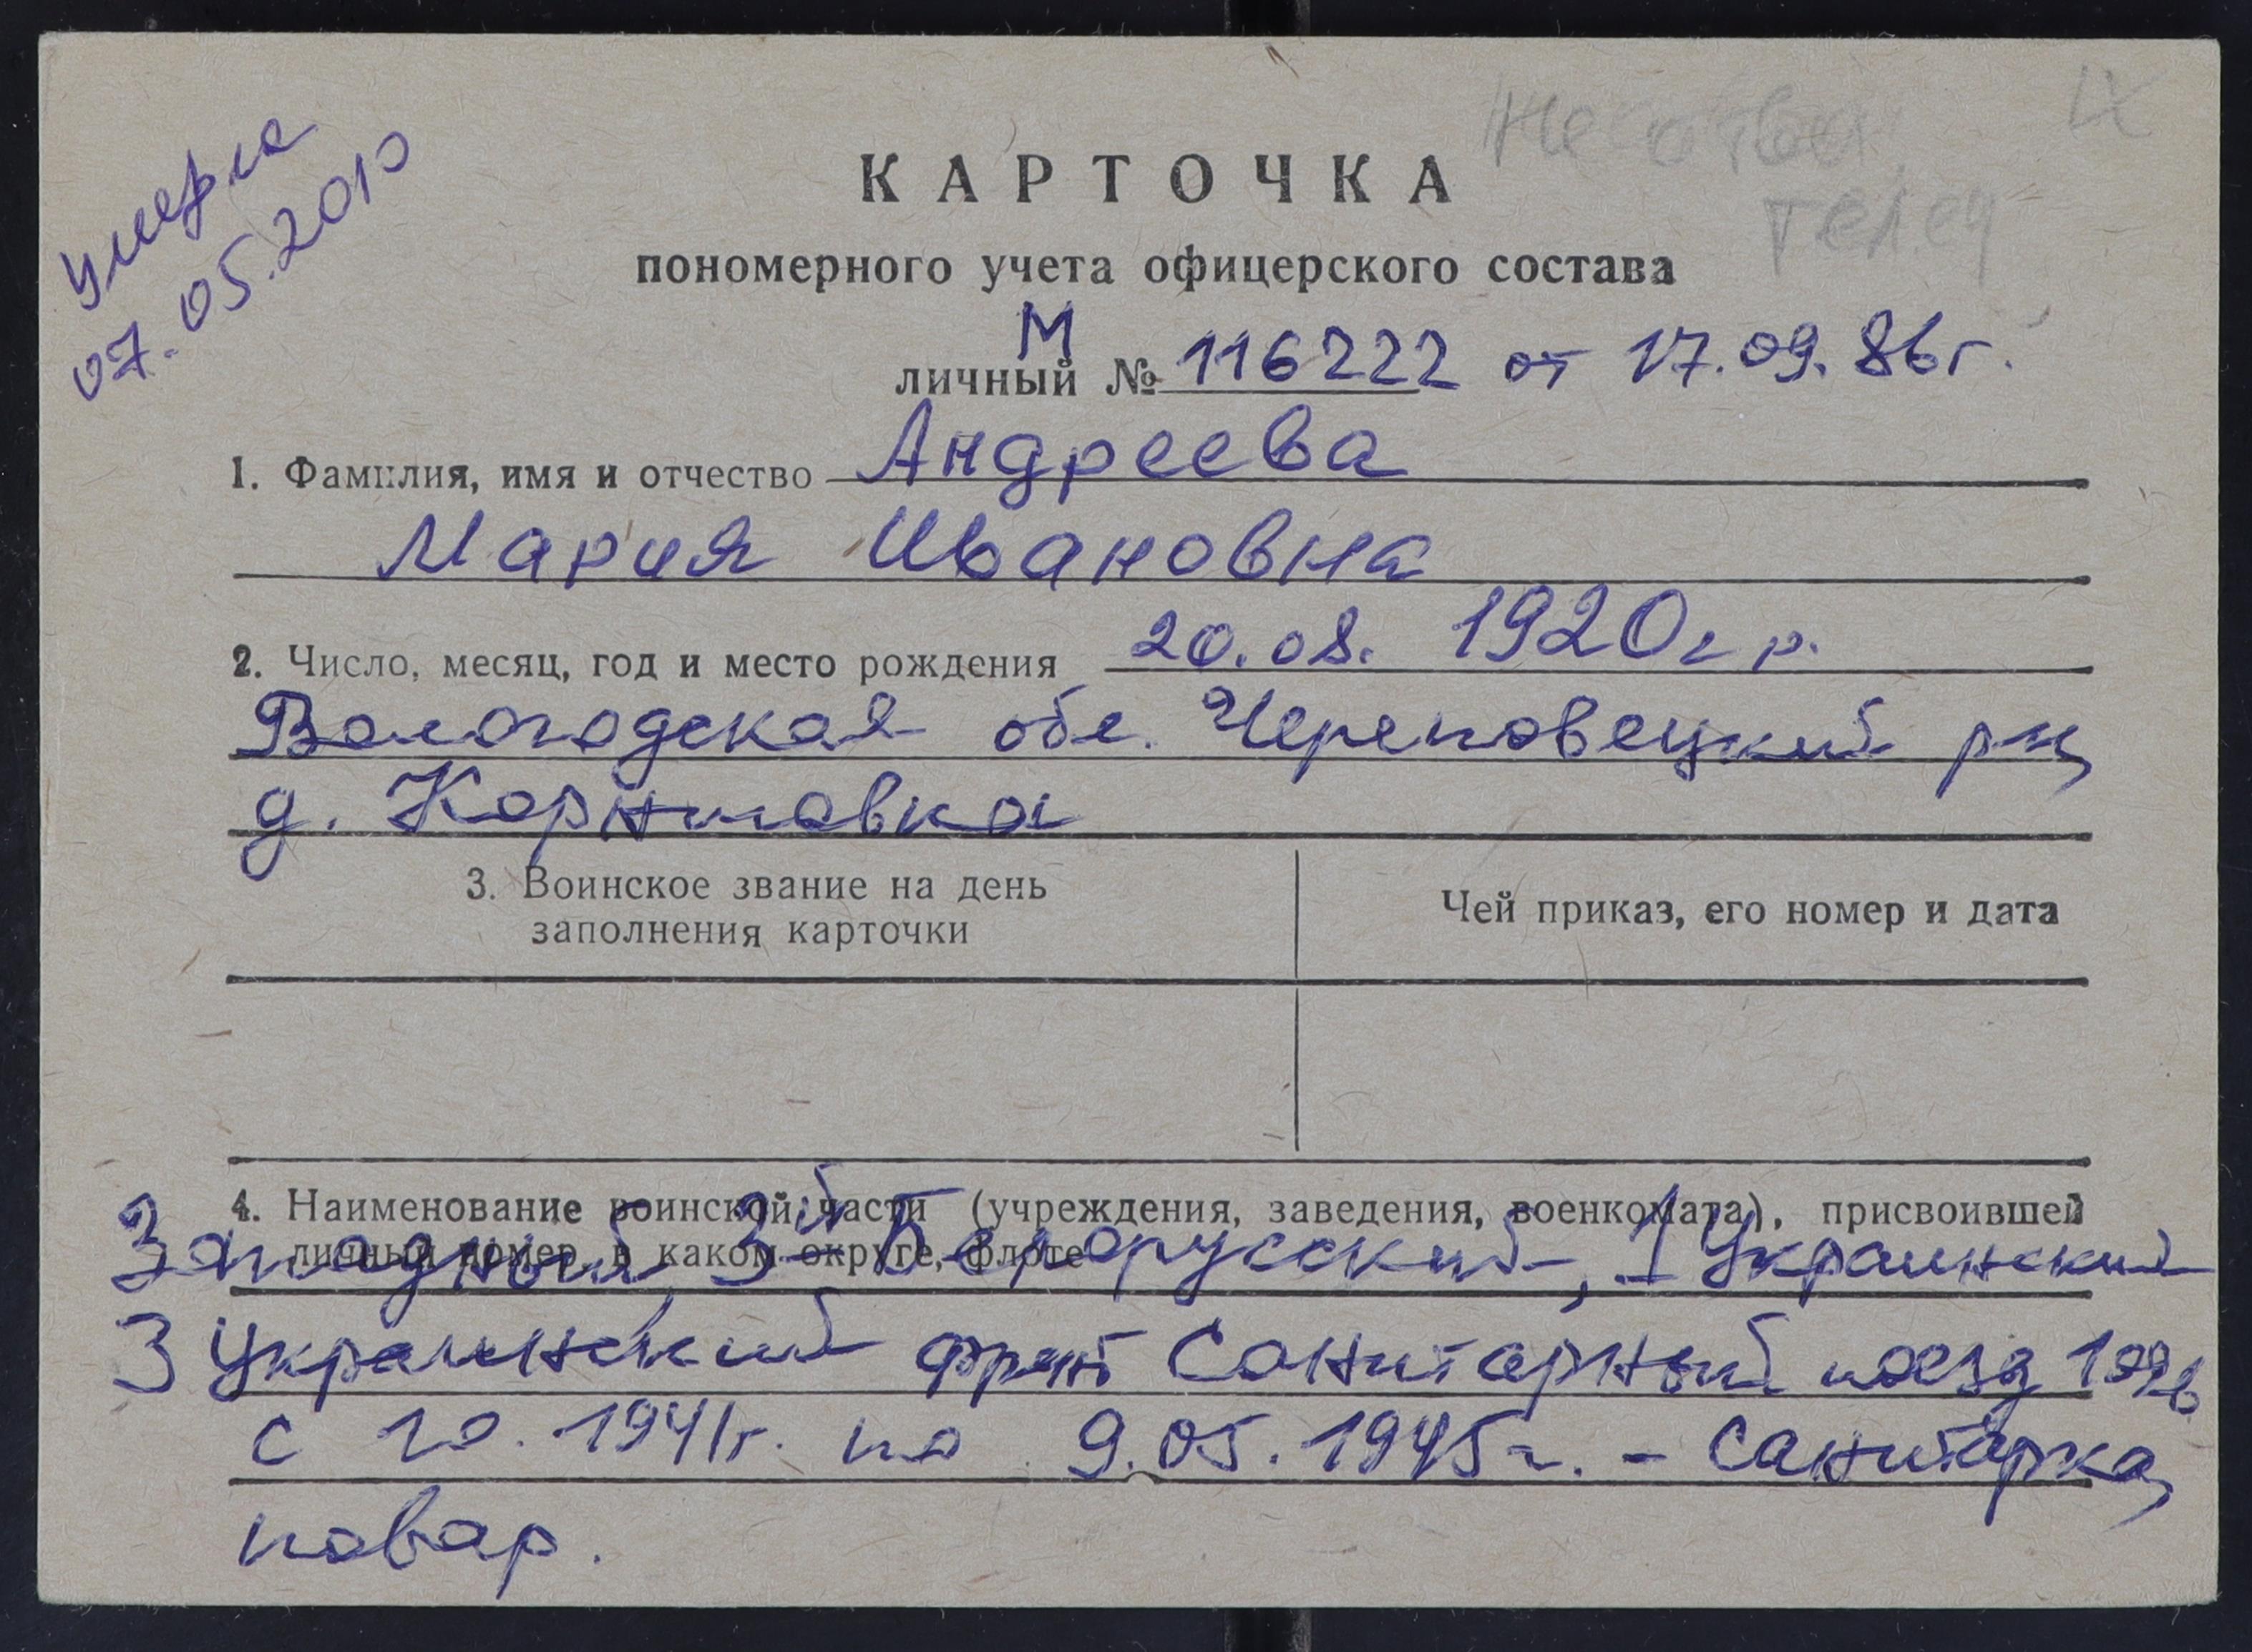 умерла
07.05.2010
КАРТОЧКА
пономерного учета офицерского состава
М
личный № 116222 от 17.09.86г.
1. Фамилия, имя и отчество Андреева
Мария Ивановна
2. Число, месяц, год и место рождения 20.08. 1920г р.
Вологодская обл. Череповецкий р-н,
д.
3. Воинское звание на день
заполнения карточки
Чей приказ, его номер и дата
4. Наименование воинской части (учреждения, заведения, военкомата), присвоившей
личный номер, в каком округе, флоте
Западный, 3й Белорусский, 1 Украинский
3 Украинский фронт Санитарный поезд
с 10.1941г. по 9.05.1945г. - санитарка,
повар.